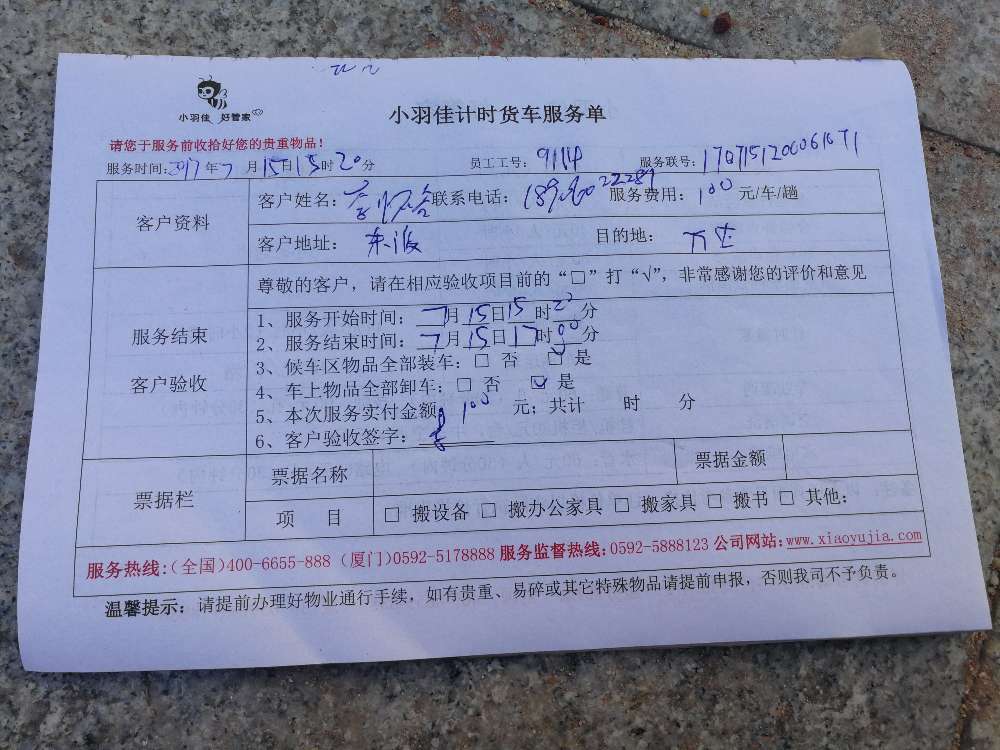 小羽佳 好管家
小羽佳计时货车服务单
请您于服务前收拾好您的贵重物品！
服务时间：2017年7月15日15时20分 员工工号：9114 服务联号：
客户资料
客户姓名： 联系电话： 服务费用：100元/车/趟
客户地址： 目的地：
服务结束
客户验收
尊敬的客户，请在相应验收项目前的“□”打“√”，非常感谢您的评价和意见
1、服务开始时间：7月15日15时20分
2、服务结束时间：7月15日17时00分
3、候车区物品全部装车：□ 否 ☑ 是
4、车上物品全部卸车：□ 否 ☑ 是
5、本次服务实付金额：100元；共计 时 分
6、客户验收签字：
票据栏
票据名称 票据金额
项 目 □ 搬设备 □ 搬办公家具 □ 搬家具 □ 搬书 □ 其他：
服务热线：（全国）400-6655-888（厦门）0592-5178888 服务监督热线：0592-5888123 公司网站：www.xiaoyujia.com
温馨提示：请提前办理好物业通行手续，如有贵重、易碎或其它特殊物品请提前申报，否则我司不予负责。